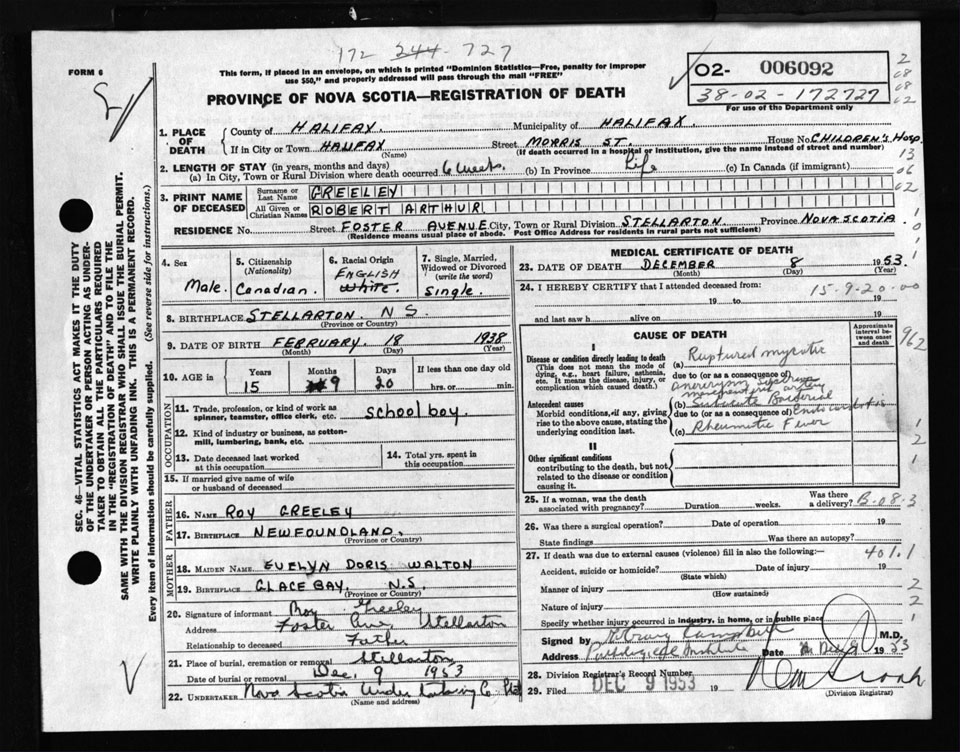 172 244 727
FORM 6
This form, if placed in an envelope, on which is printed "Dominion Statistics—Free, penalty for improper
use $50," and properly addressed will pass through the mail "FREE"
PROVINCE OF NOVA SCOTIA—REGISTRATION OF DEATH
02- 006092
38-02-172727
For use of the Department only
2
08
08
02
13
06
02
1. PLACE OF DEATH County of HALIFAX Municipality of HALIFAX
If in City or Town HALIFAX (Name) Street MORRIS ST. House No CHILDREN'S Hosp
(If death occurred in a hospital or institution, give the name instead of street and number)
2. LENGTH OF STAY (in years, months and days)
(a) In City, Town or Rural Division where death occurred 6 weeks (b) In Province Life (c) In Canada (if immigrant)
3. PRINT NAME OF DECEASED Surname or Last Name GREELEY
All Given or Christian Names ROBERT ARTHUR
RESIDENCE No. Street FOSTER AVENUE City, Town or Rural Division STELLARTON Province NOVA SCOTIA
(Residence means usual place of abode. Post Office Address for residents in rural parts not sufficient)
4. Sex Male.
5. Citizenship (Nationality) Canadian.
6. Racial Origin ENGLISH White.
7. Single, Married, Widowed or Divorced (write the word) Single.
8. BIRTHPLACE STELLARTON. N S.
(Province or Country)
9. DATE OF BIRTH FEBRUARY. 18 1938
(Month) (Day) (Year)
10. AGE in Years 15 Months 9 Days 20 If less than one day old hrs. or min.
OCCUPATION
11. Trade, profession, or kind of work as spinner, teamster, office clerk, etc. school boy.
12. Kind of industry or business, as cotton-mill, lumbering, bank, etc.
13. Date deceased last worked at this occupation
14. Total yrs. spent in this occupation
15. If married give name of wife or husband of deceased
FATHER
16. NAME ROY GREELEY
17. BIRTHPLACE NEWFOUNDLAND.
(Province or Country)
MOTHER
18. MAIDEN NAME EVELYN DORIS WALTON
19. BIRTHPLACE GLACE BAY, N.S.
(Province or Country)
20. Signature of informant Roy Greeley
Address Foster Ave, Stellarton
Relationship to deceased Father
21. Place of burial, cremation or removal Stellarton
Date of burial or removal Dec. 9 1953
22. UNDERTAKER Nova Scotia Undertaking Co.
(Name and address)
MEDICAL CERTIFICATE OF DEATH
23. DATE OF DEATH DECEMBER 8 1953.
(Month) (Day) (Year)
24. I HEREBY CERTIFY that I attended deceased from:
15-9-20-00
19 to 19
and last saw h alive on 19
962
CAUSE OF DEATH
Approximate interval between onset and death
I
Disease or condition directly leading to death
(This does not mean the mode of dying, e.g., heart failure, asthenia, etc. It means the disease, injury, or complication which caused death.)
(a) Ruptured mycotic
due to (or as a consequence of)
aneurysm
Antecedent causes
Morbid conditions, if any, giving rise to the above cause, stating the underlying condition last.
(b) Subacute Bacterial
due to (or as a consequence of) Endocarditis
(c) Rheumatic Fever
II
Other significant conditions
contributing to the death, but not related to the disease or condition causing it.
25. If a woman, was the death associated with pregnancy? Duration weeks. Was there a delivery?
B-08-3
26. Was there a surgical operation? Date of operation 19
State findings Was there an autopsy?
27. If death was due to external causes (violence) fill in also the following:—
401.1
Accident, suicide or homicide? Date of injury 19
(State which)
Manner of injury 2
(How sustained)
Nature of injury 2
Specify whether injury occurred in industry, in home, or in public place 1
Signed by Campbell M.D.
Address Pathological Institute Date Dec 9 1953
28. Division Registrar's Record Number
29. Filed DEC 9 1953 19
(Division Registrar)
SEC. 46—VITAL STATISTICS ACT MAKES IT THE DUTY
OF THE UNDERTAKER OR PERSON ACTING AS UNDER-
TAKER TO OBTAIN ALL THE PARTICULARS REQUIRED
IN THE "REGISTRATION OF DEATH" AND TO FILE THE
SAME WITH THE DIVISION REGISTRAR WHO SHALL ISSUE THE BURIAL PERMIT.
WRITE PLAINLY WITH UNFADING INK. THIS IS A PERMANENT RECORD.
Every item of information should be carefully supplied. (See reverse side for instructions.)